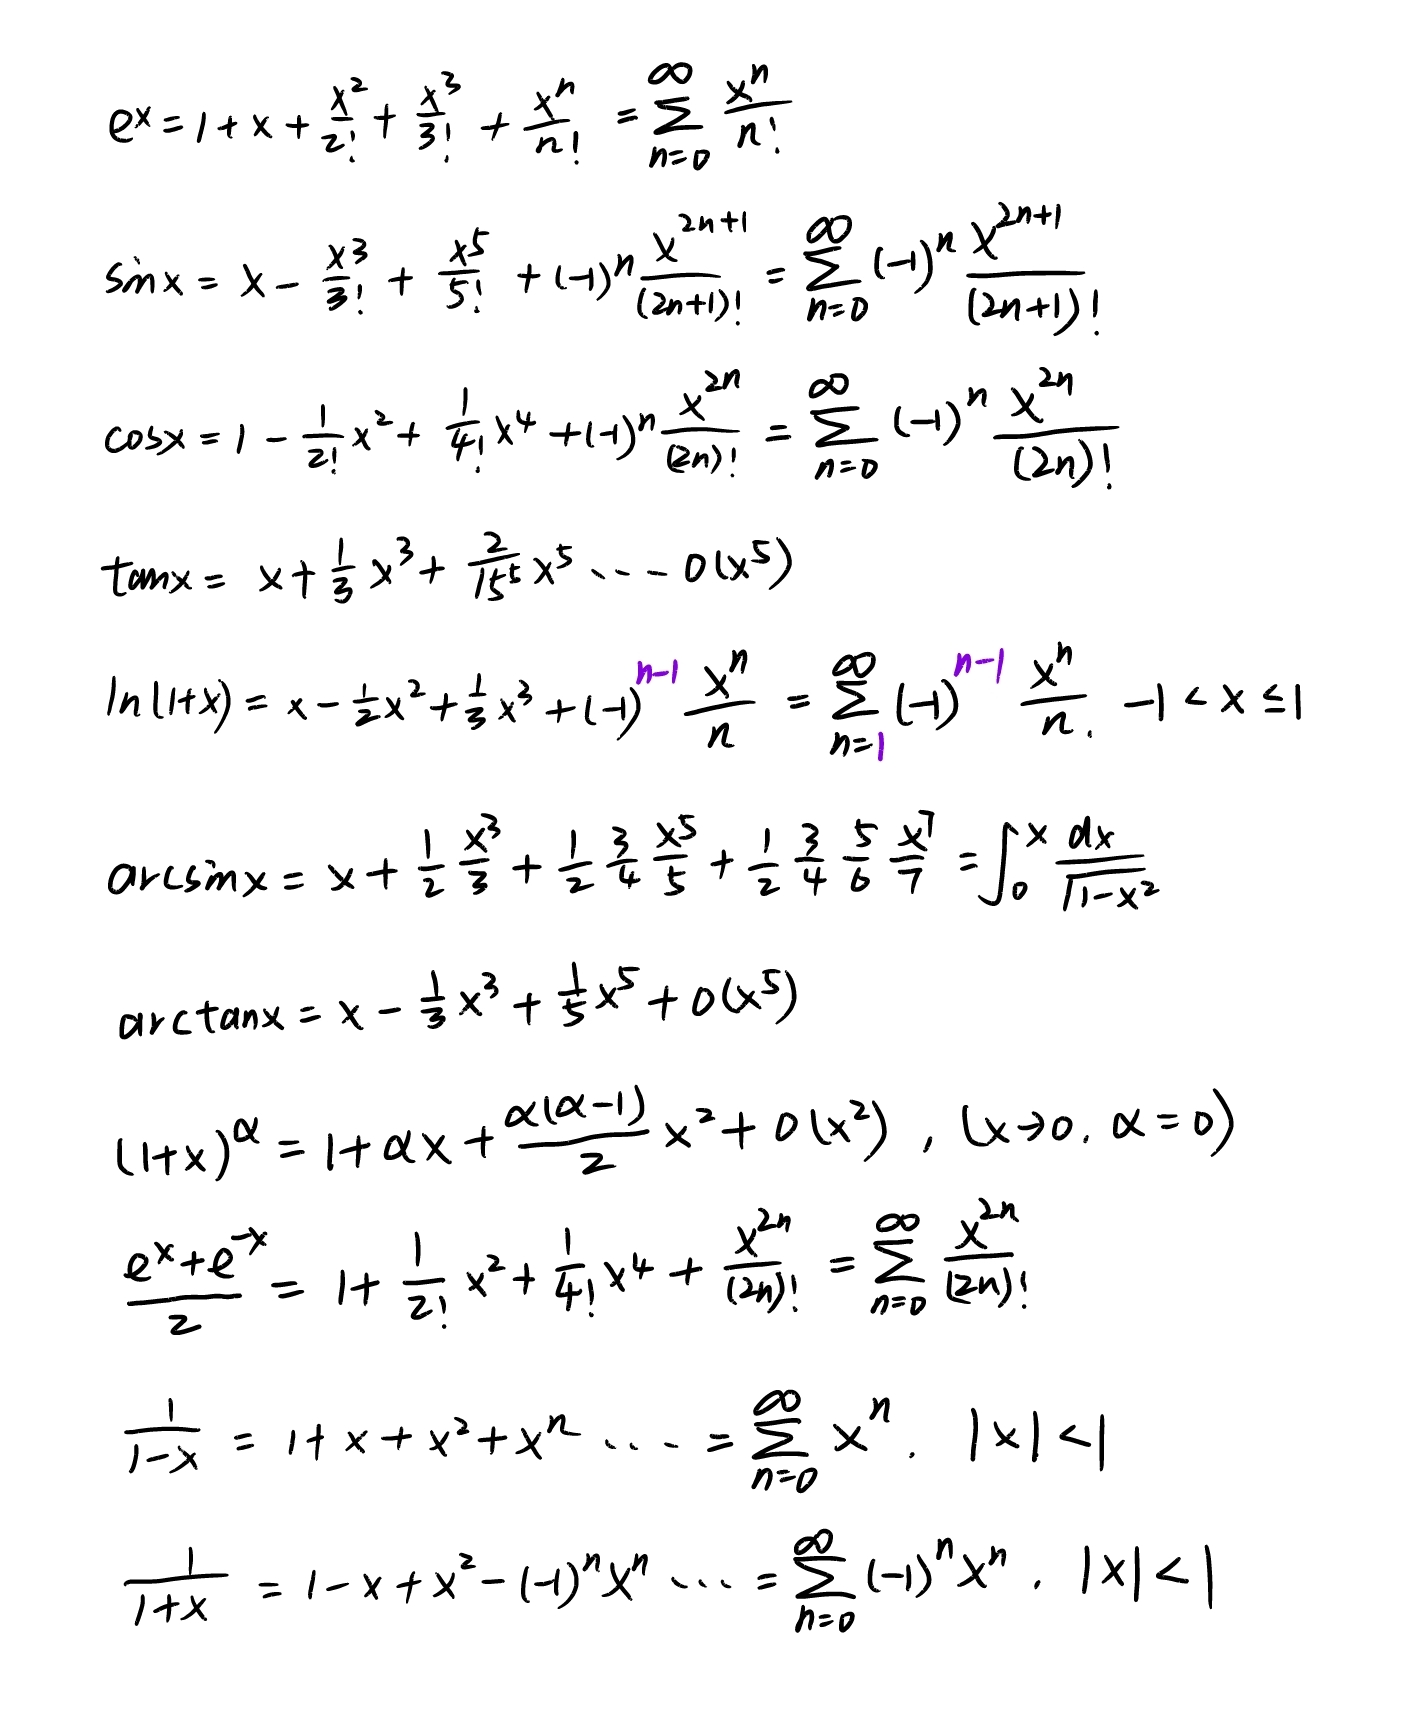 eˣ = 1 + x + x²/2! + x³/3! + xⁿ/n! = ∑_{n=0}^{∞} xⁿ/n!
sin x = x - x³/3! + x⁵/5! + (-1)ⁿ x^{2n+1}/(2n+1)! = ∑_{n=0}^{∞} (-1)ⁿ x^{2n+1}/(2n+1)!
cosx = 1 - 1/2! x² + 1/4! x⁴ + (-1)ⁿ x^{2n}/(2n)! = ∑_{n=0}^{∞} (-1)ⁿ x^{2n}/(2n)!
tanx = x + 1/3 x³ + 2/15 x⁵ ... 0(x⁵)
ln(1+x) = x - 1/2 x² + 1/3 x³ + (-1)^{n-1} xⁿ/n = ∑_{n=1}^{∞} (-1)^{n-1} xⁿ/n. -1 < x ≤ 1
arcsinx = x + 1/2 x³/3 + 1/2 3/4 x⁵/5 + 1/2 3/4 5/6 x⁷/7 = ∫_{0}^{x} dx/√(1-x²)
arctanx = x - 1/3 x³ + 1/5 x⁵ + 0(x⁵)
(1+x)^α = 1 + αx + α(α-1)/2 x² + 0(x²), (x→0, α=0)
(eˣ + e⁻ˣ)/2 = 1 + 1/2! x² + 1/4! x⁴ + x^{2n}/(2n)! = ∑_{n=0}^{∞} x^{2n}/(2n)!
1/(1-x) = 1 + x + x² + xⁿ ... = ∑_{n=0}^{∞} xⁿ. |x| < 1
1/(1+x) = 1 - x + x² - (-1)ⁿxⁿ ... = ∑_{n=0}^{∞} (-1)ⁿxⁿ. |x| < 1